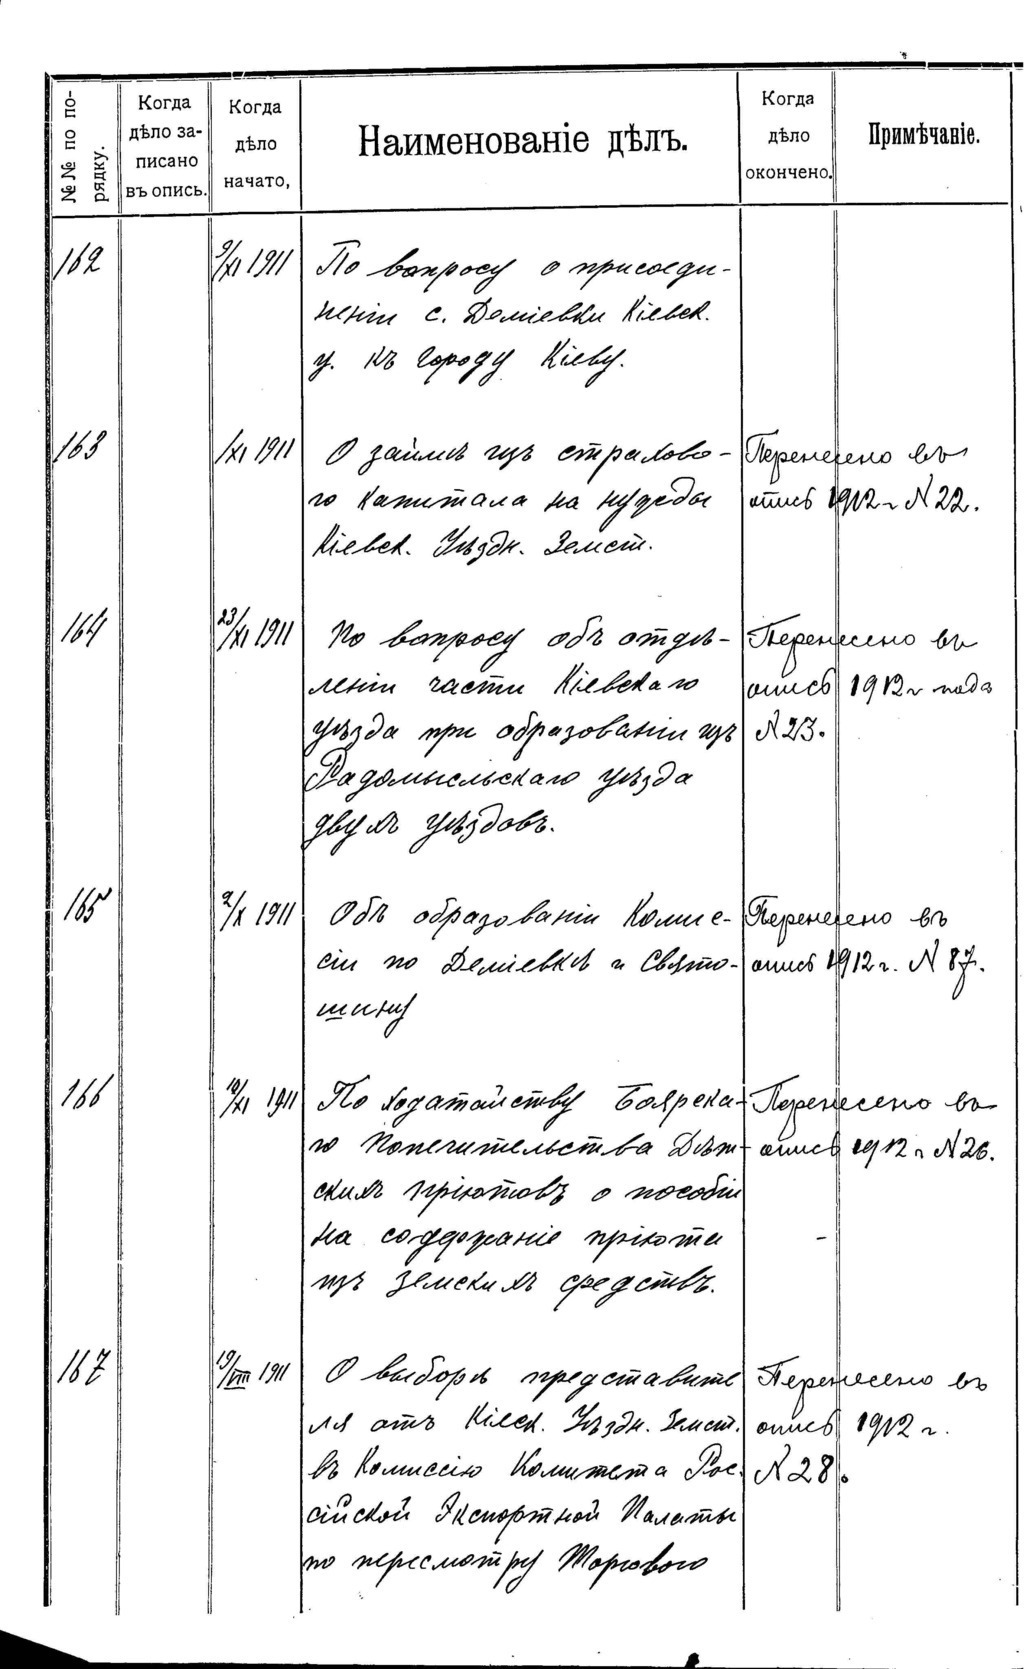 №№ по по-
рядку.
Когда
дѣло за-
писано
въ опись.
Когда
дѣло
начато,
Наименованіе дѣлъ.
Когда
дѣло
окончено.
Примѣчаніе.
162 9/XI 1911 По вопросу о присоеди-
неніи с. Деміевки Кіевск.
у. къ городу Кіеву.
163 /XI 1911 О займѣ изъ страхово- Перенесено въ
го капитала на нужды опись 1912 г. N 22.
Кіевск. Уѣздн. Земст.
164 23/XI 1911 По вопросу объ отдѣ- Перенесено въ
леніи части Кіевскаго опись 1912 г подъ
уѣзда при образованіи изъ N 23.
Радомысльскаго уѣзда
двухъ уѣздовъ.
165 2/X 1911 Объ образованіи Комис- Перенесено въ
сіи по Деміевкѣ и Свято- опись 1912 г. N 87.
шину
166 10/XI 1911 По ходатайству Боярска- Перенесено въ
го Попечительства Дѣт- опись 1912 г N 26.
скихъ пріютовъ о пособіи
на содержаніе пріюта -
изъ земскихъ средствъ.
167 19/VIII 1911 О выборѣ представите Перенесено въ
ля отъ Кіевск. Уѣздн. Земст. опись 1912 г.
въ Комиссію Комитета Рос. N 28.
сійской Экспортной Палаты
по пересмотру Торговаго